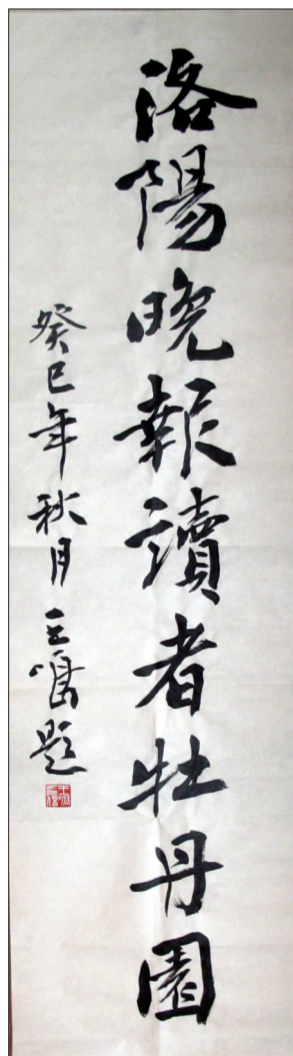 洛陽晚報讀者牡丹園
癸巳年秋月王鳴題